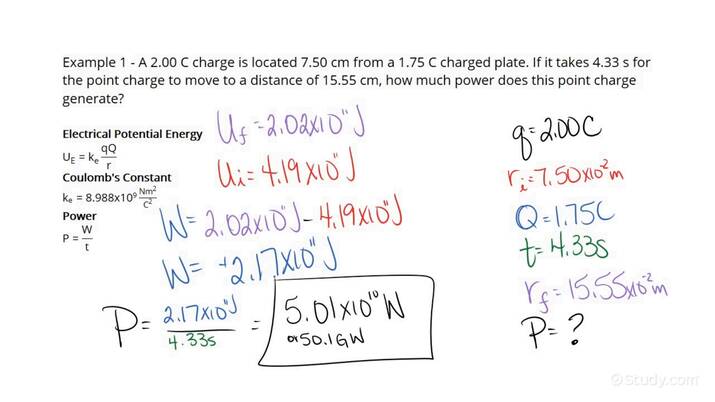 Example 1 - A 2.00 C charge is located 7.50 cm from a 1.75 C charged plate. If it takes 4.33 s for
the point charge to move to a distance of 15.55 cm, how much power does this point charge
generate?
Electrical Potential Energy
U_E = k_e qQ/r
Coulomb's Constant
k_e = 8.988x10⁹ Nm²/C²
Power
P = W/t
U_f = 2.02x10¹¹J
U_i = 4.19x10¹¹J
W = 2.02x10¹¹J - 4.19x10¹¹J
W = -2.17x10¹¹J
P = 2.17x10¹¹J/4.33s = 5.01x10¹⁰W
or 50.1GW
q=2.00C
r_i=7.50x10⁻²m
Q=1.75C
t=4.33s
r_f=15.55x10⁻²m
P=?
©Study.com